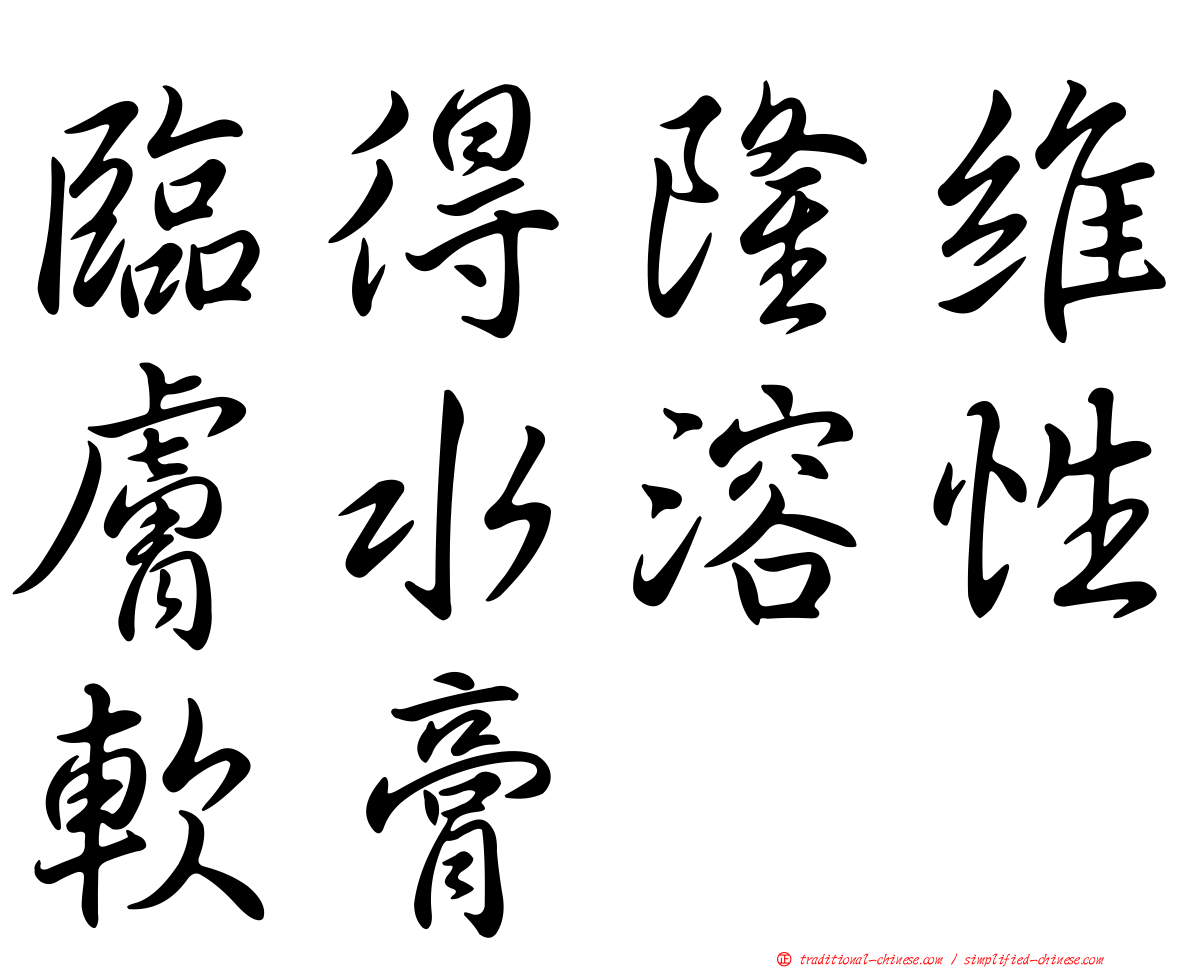 臨得隆維
膚水溶性
軟膏
正 traditional-chinese.com / simplified-chinese.com